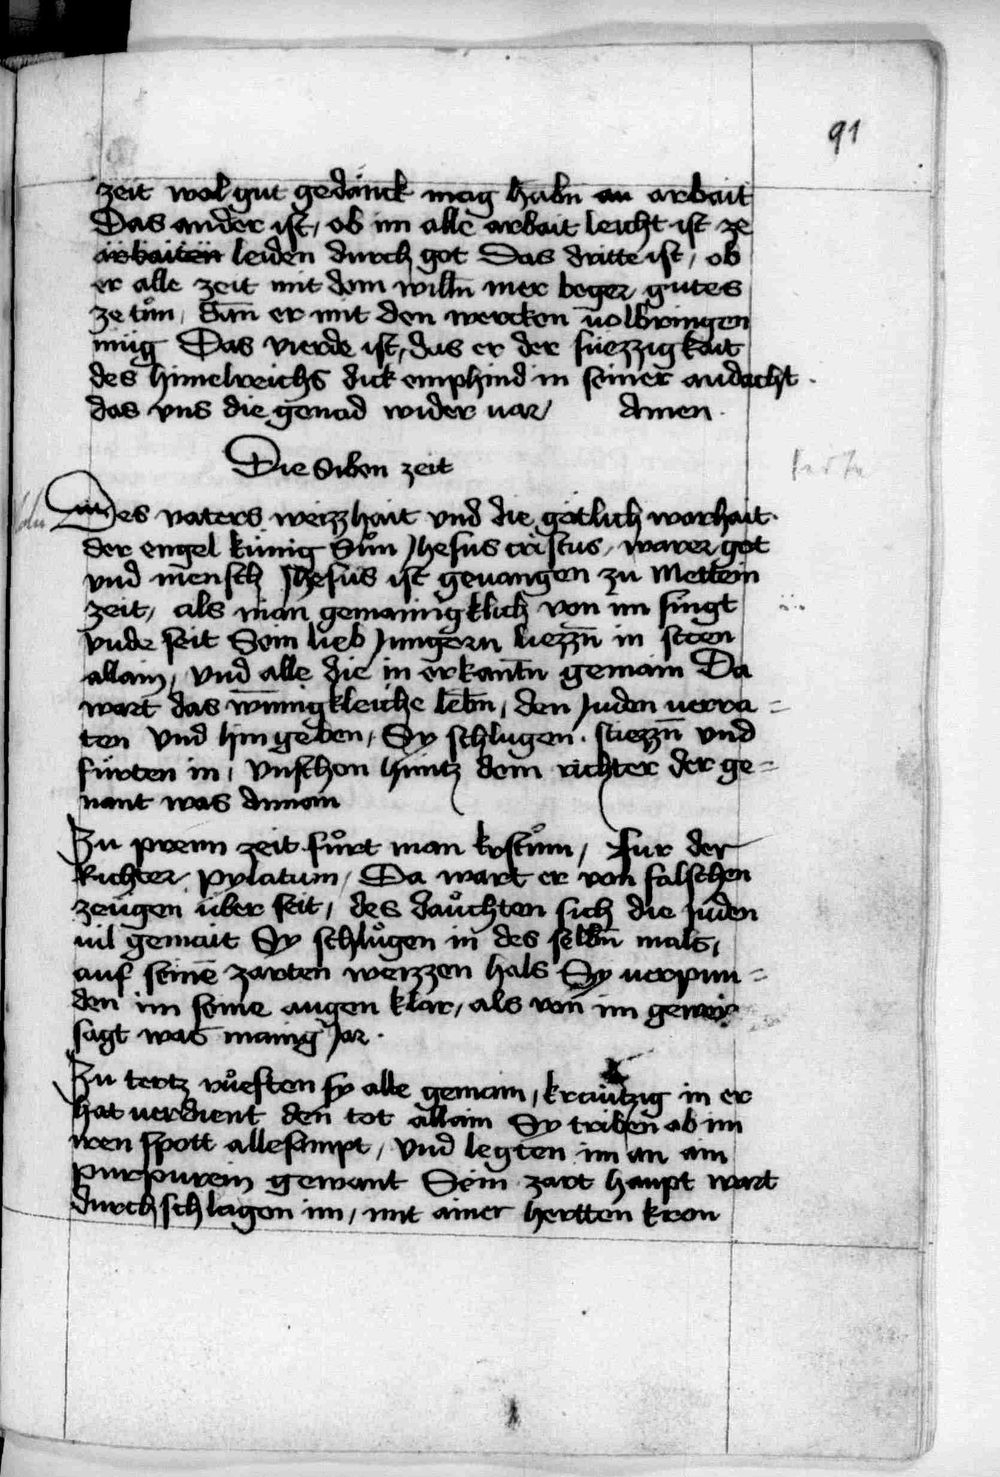 91
zeit wol gut gedänck mag habn an arbait
Das ander ist, ob im alle arbait leicht ist ze
arbaiten leiden durch got Das dritte ist, ob
er alle zeit mit dem willn mer beger gutes
ze tůn, dan̄ er mit den wercken uolbringen
müg Das vierde ist, das er der süezzigkait
des himelreichs dick emphind in seiner andacht.
das vns die genad wider uar, Amen.
Die Siben zeit
Des vaters weizzhait vnd die götlich warhait.
der engel künig Sůn Jhesus cristus, warer got
vnd mensch Jhesus ist geuangen zu Mettein
zeit, als man gemainigklich von im singt
vnde seit Sein lieb Jungern liezzn̄ in steen
allain, vnd alle die in erkantn̄ gemain Da
wart das wn̄nigkleiche lebn̄, den Juden uerra=
ten vnd hin geben, Sy schlugen. stiezzn̄ vnd
fürten in, vnschon hüntz dem richter der ge=
nant was Annain
Zu preim zeit fůrt man kristum, für der
Richter pylatum, Da wart er von falschen
zeügen über seit, des dauchten sich die Juden
uil gemait Sy schlůgen in des selbn̄ mals,
auf seinē zarten weizzen hals Sy uerpun=
den im seine augen klar, als von im gewei
sagt was manig Jar.
Zu tertz růeften sy alle gemain, kräützig in er
hat uerdient den tot allain Sy triben ab im
iren spott allesampt, vnd legten im an ain
purpurein gewant Sein zart haupt wart
durchschlagen im, mit ainer hertten kron